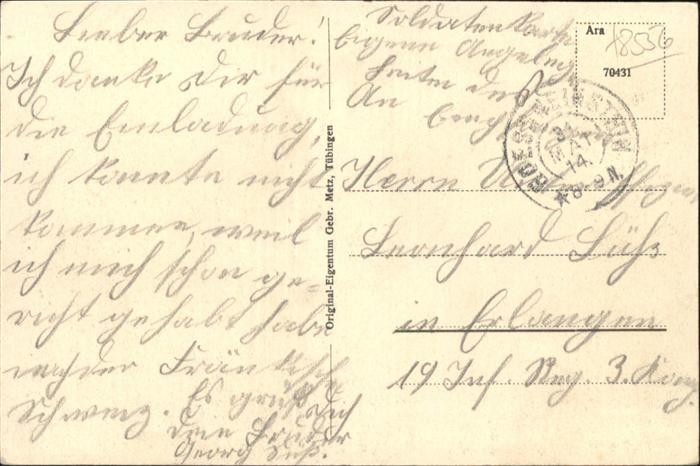 Lieber Bruder!
Ich danke Dir für
die Einladung,
ich konnte nicht
kommen, weil
ich mich schon ge=
richt gehabt habe
nach der Fränkische
Schweiz. Es grüßt
Dich
dein Bruder
Georg Süß.
Original-Eigentum Gebr. Metz, Tübingen
Soldatenkarte
Eigene Angeleg
An
Ara
18556
70431
MAI
14
* 8-9 N.
Herrn Unteroffizier
Leonhard Süß
in Erlangen
19 Inf. Reg. 3. Komp.